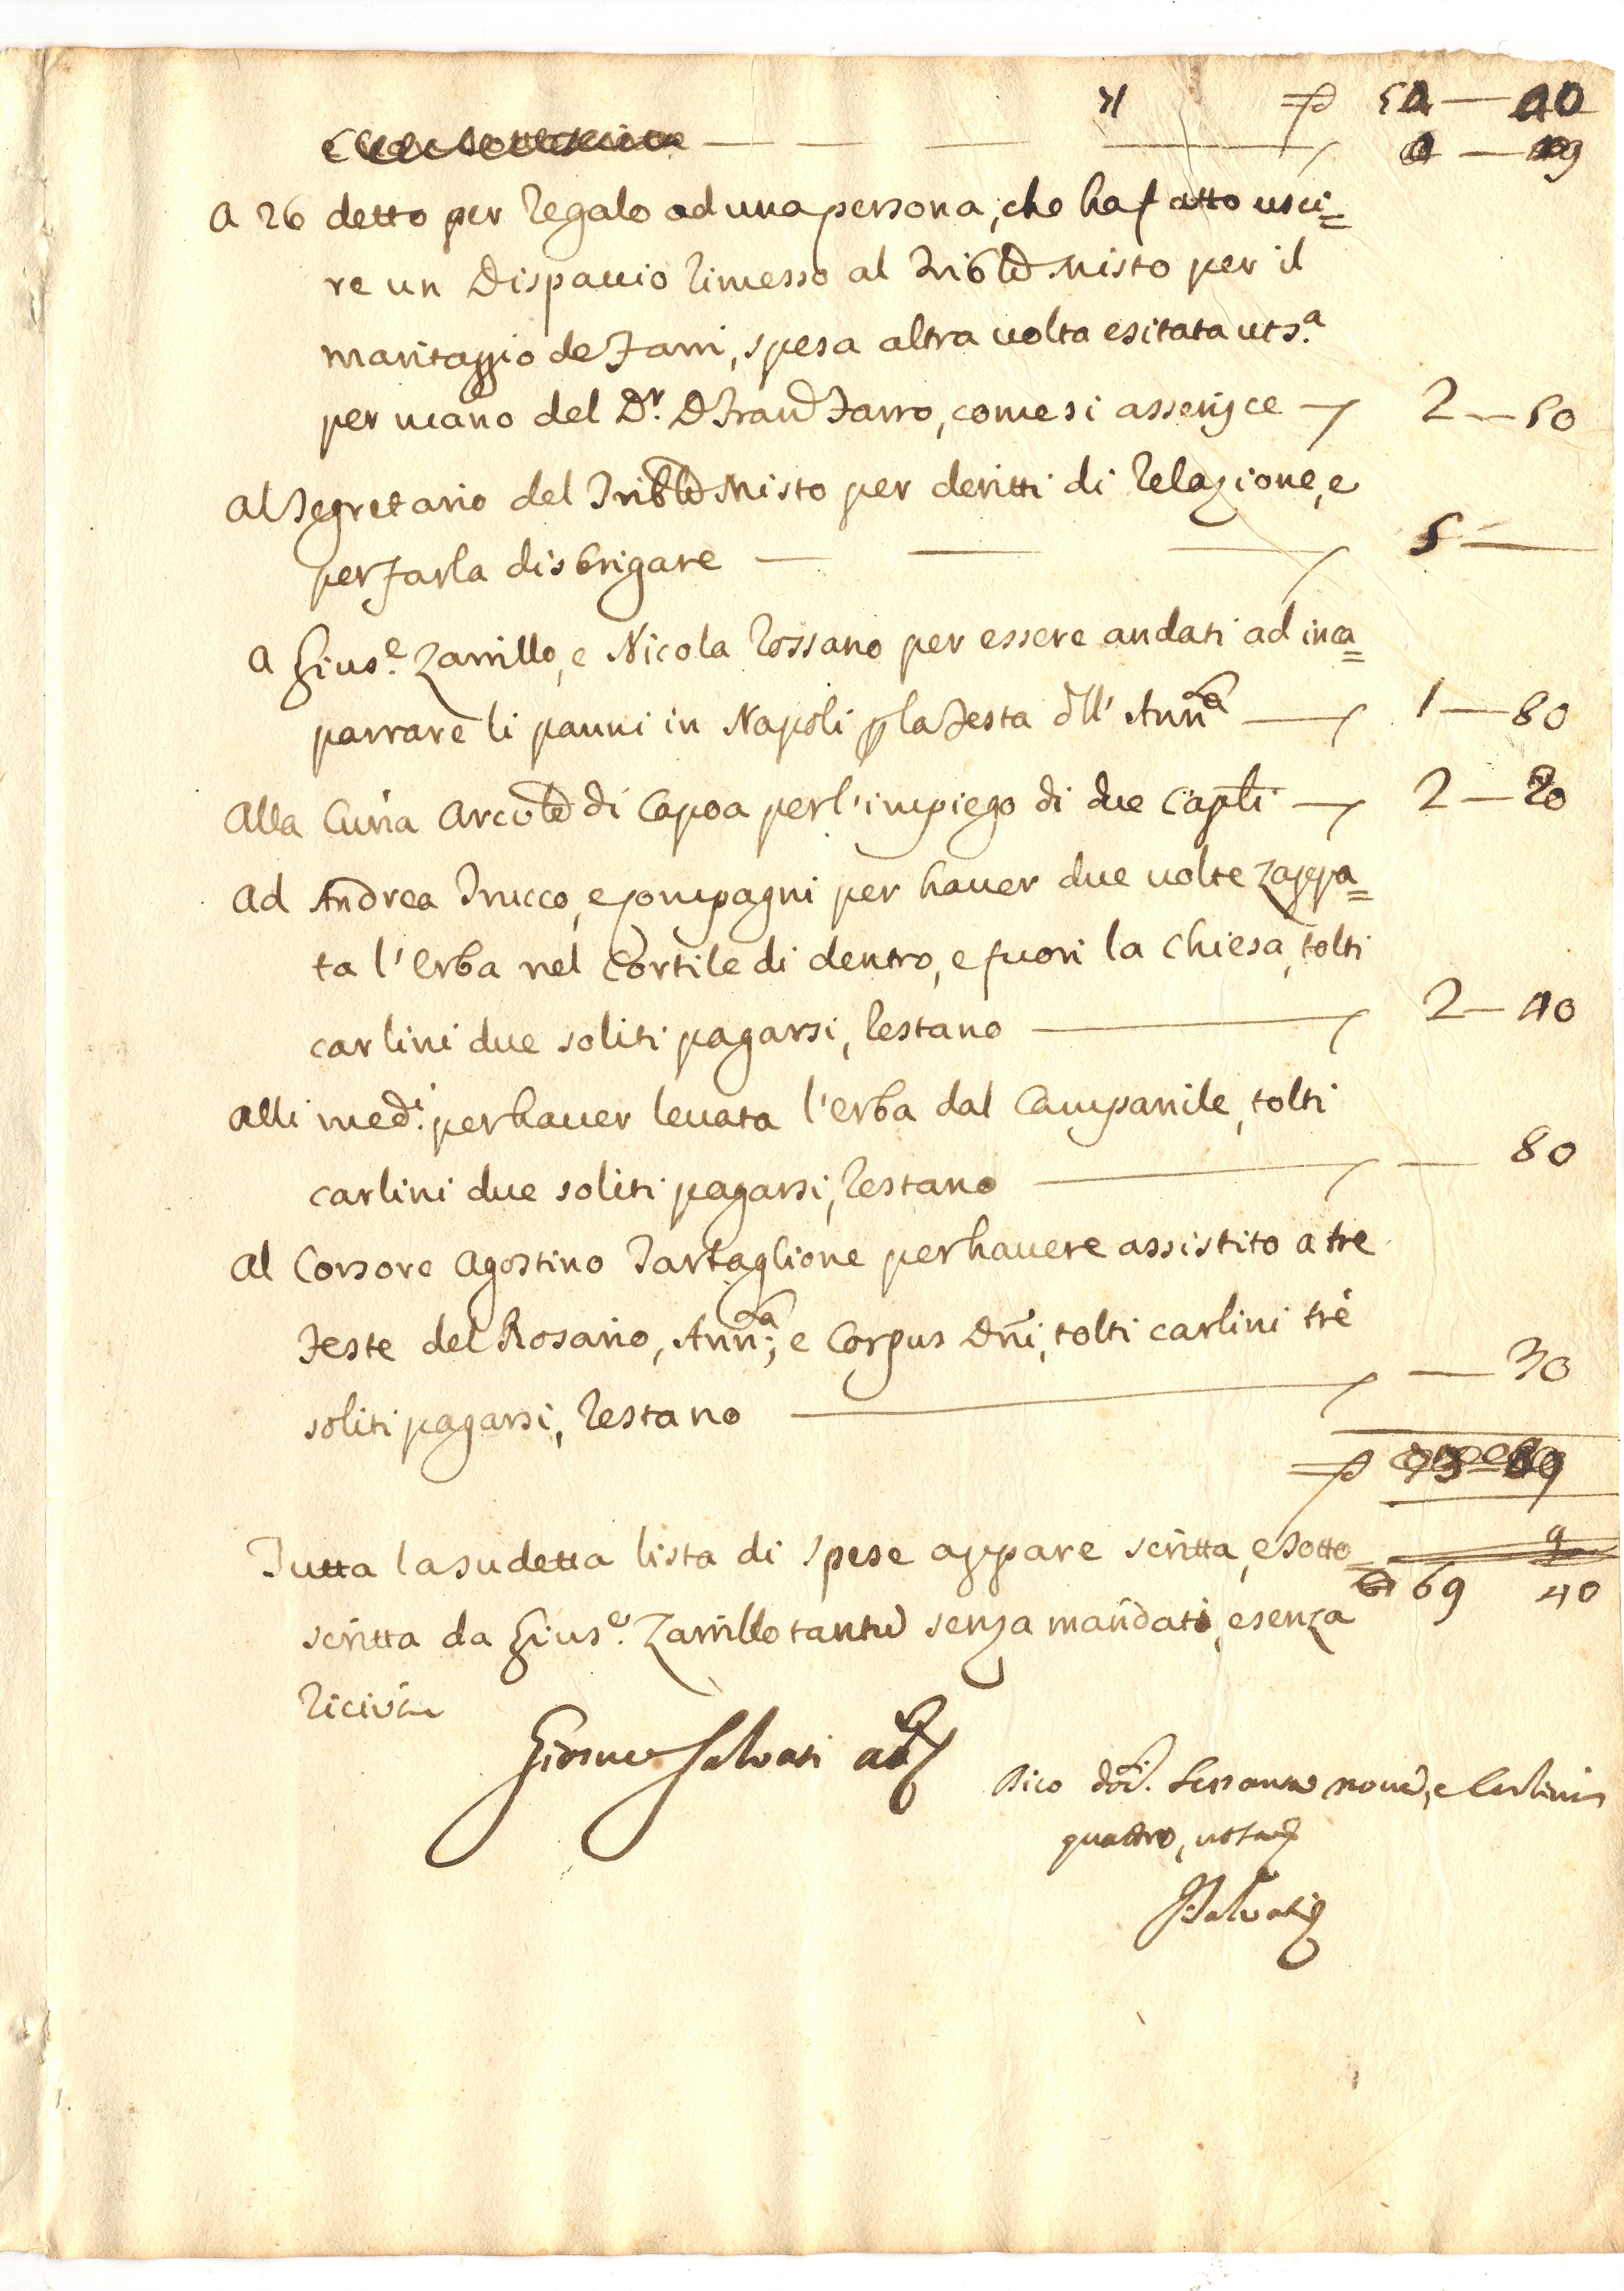 A 26 detto per regalo ad una persona, che ha fatto usci= 2 — 50
re un Dispaccio rimesso al Trible Misto per il
maritaggio de Farri, spesa altra volta esitata uts.a
per mano del D.r D Fran Farro, come si asserisce
Al Segretario del Trible Misto per deritti di relazione, e
per farla disbrigare — 5 —
A Gius.e Zarrillo, e Nicola Rossano per essere andati ad inca=
parrare li panni in Napoli p la Festa dll' Ann.a — 1 — 80
Alla Curia Arcivle di Capoa per l'impiego di due Capli — 2 — 20
Ad Andrea Trucco, e compagni per haver due volte zappa=
ta l'erba nel Cortile di dentro, e fuori la Chiesa, tolti
carlini due soliti pagarsi, restano — 2 — 40
Alli med.i per haver levata l'erba dal Campanile, tolti
carlini due soliti pagarsi, restano — 80
Al Corsore Agostino Tartaglione per havere assistito a tre
Feste del Rosario, Ann.a, e Corpus Dni, tolti carlini tre
soliti pagarsi, restano — 30
Tutta la sudetta lista di spese appare scritta, e sotto=
69 40
scritta da Gius.e Zarrillo tantu senza mandati, e senza
ricivu
Salvati
Dico doc. sessanta nove, e Carlini
quattro,
Salvati